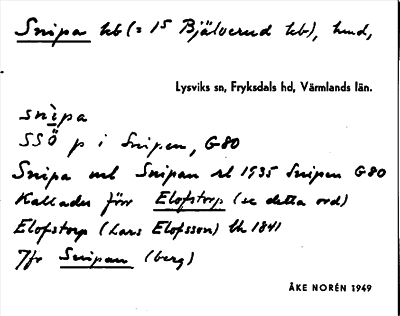 Snipa hb (= 15 Bjälverud hb), hmd,
Lysviks sn, Fryksdals hd, Värmlands län.
snìpa
SSÖ p i Snipen, G80
Snipa enl Snipan rl 1935 Snipen G80
Kallades förr Elofstorp (se detta ord)
Elofstorp (Lars Elofsson) lh 1841
Jfr Snipan (berg)
ÅKE NORÉN 1949